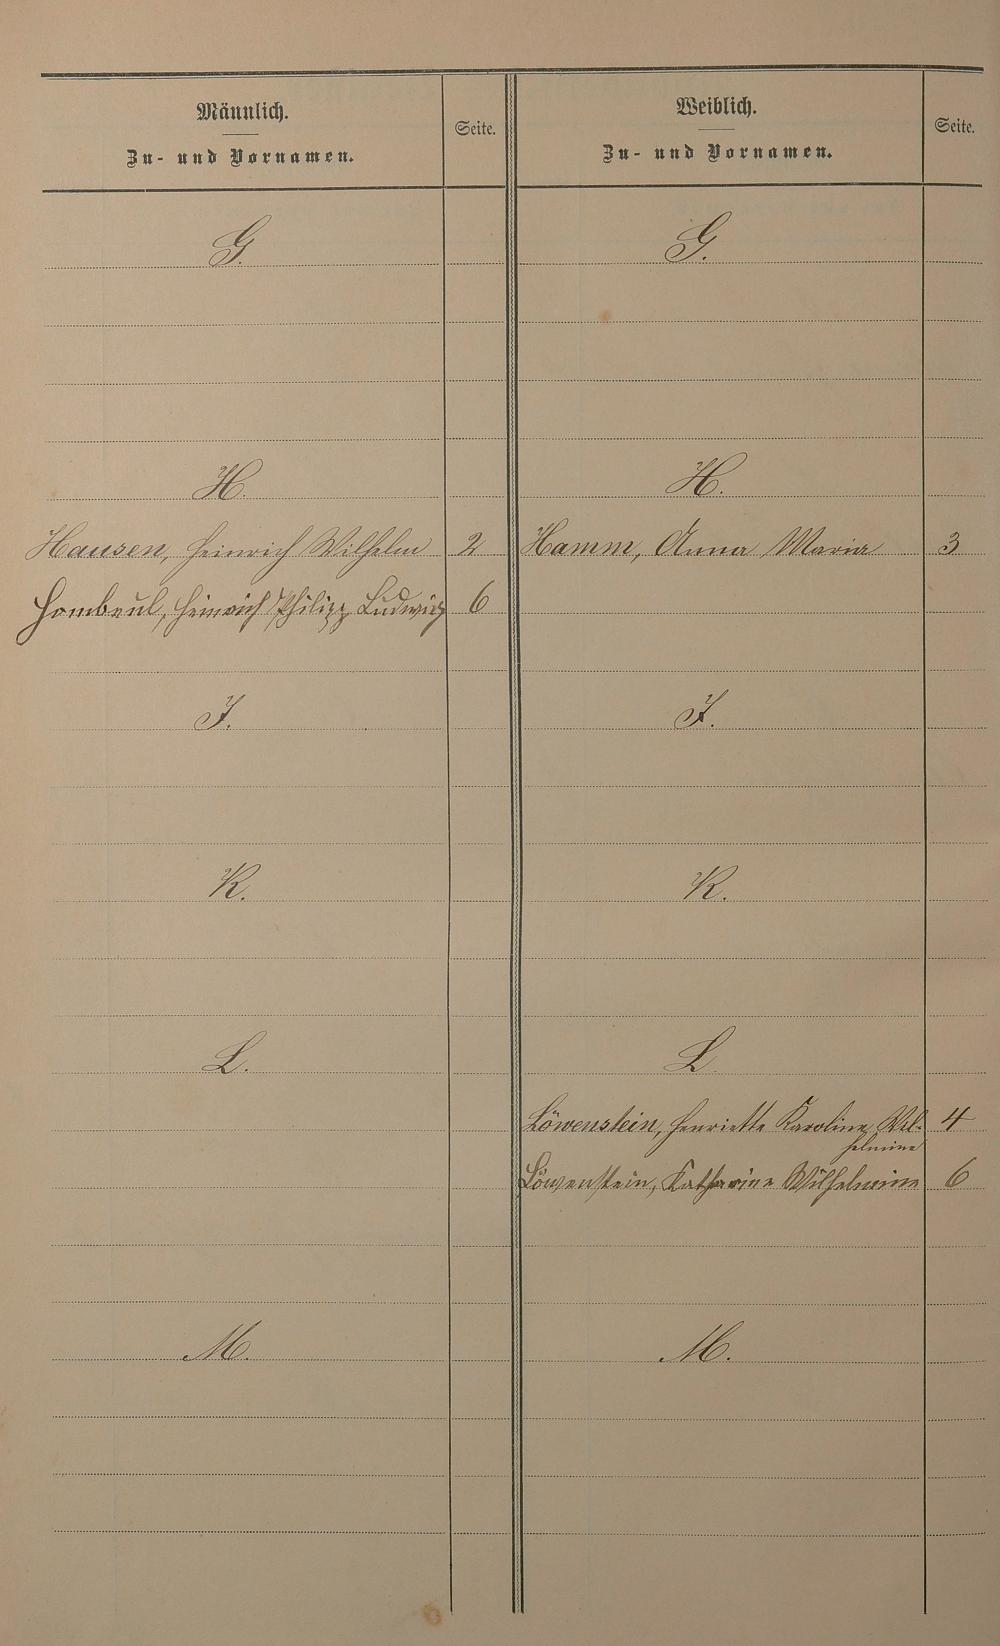 Männlich.
Zu- und Vornamen.
Seite.
Weiblich.
Zu- und Vornamen.
Seite.
G. G.
H. H.
Hausen, Heinrich Wilhelm 2 Hamm, Anna Maria 3
Hombeul, Heinrich Philipp Ludwig 6
J. J.
K. K.
L. L
Löwenstein, Henriette Karoline Wil- 4
helmine
Löwenstein, Katharine Wilhelmine 6
M. M.